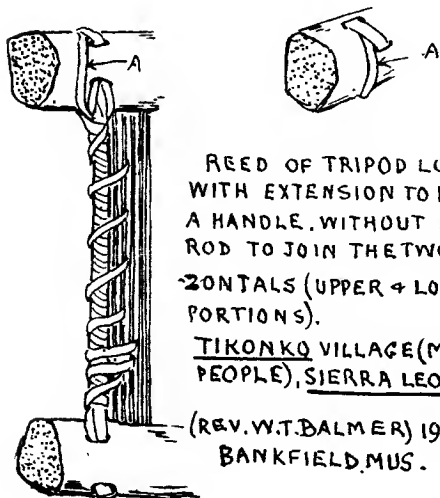 A
A
REED OF TRIPOD LO
WITH EXTENSION TO
A HANDLE. WITHOUT
ROD TO JOIN THE TWO
-ZONTALS (UPPER & LO
PORTIONS).
TIKONKO VILLAGE (M
PEOPLE), SIERRA LEO
(REV. W.T. BALMER) 19
BANKFIELD. MUS.